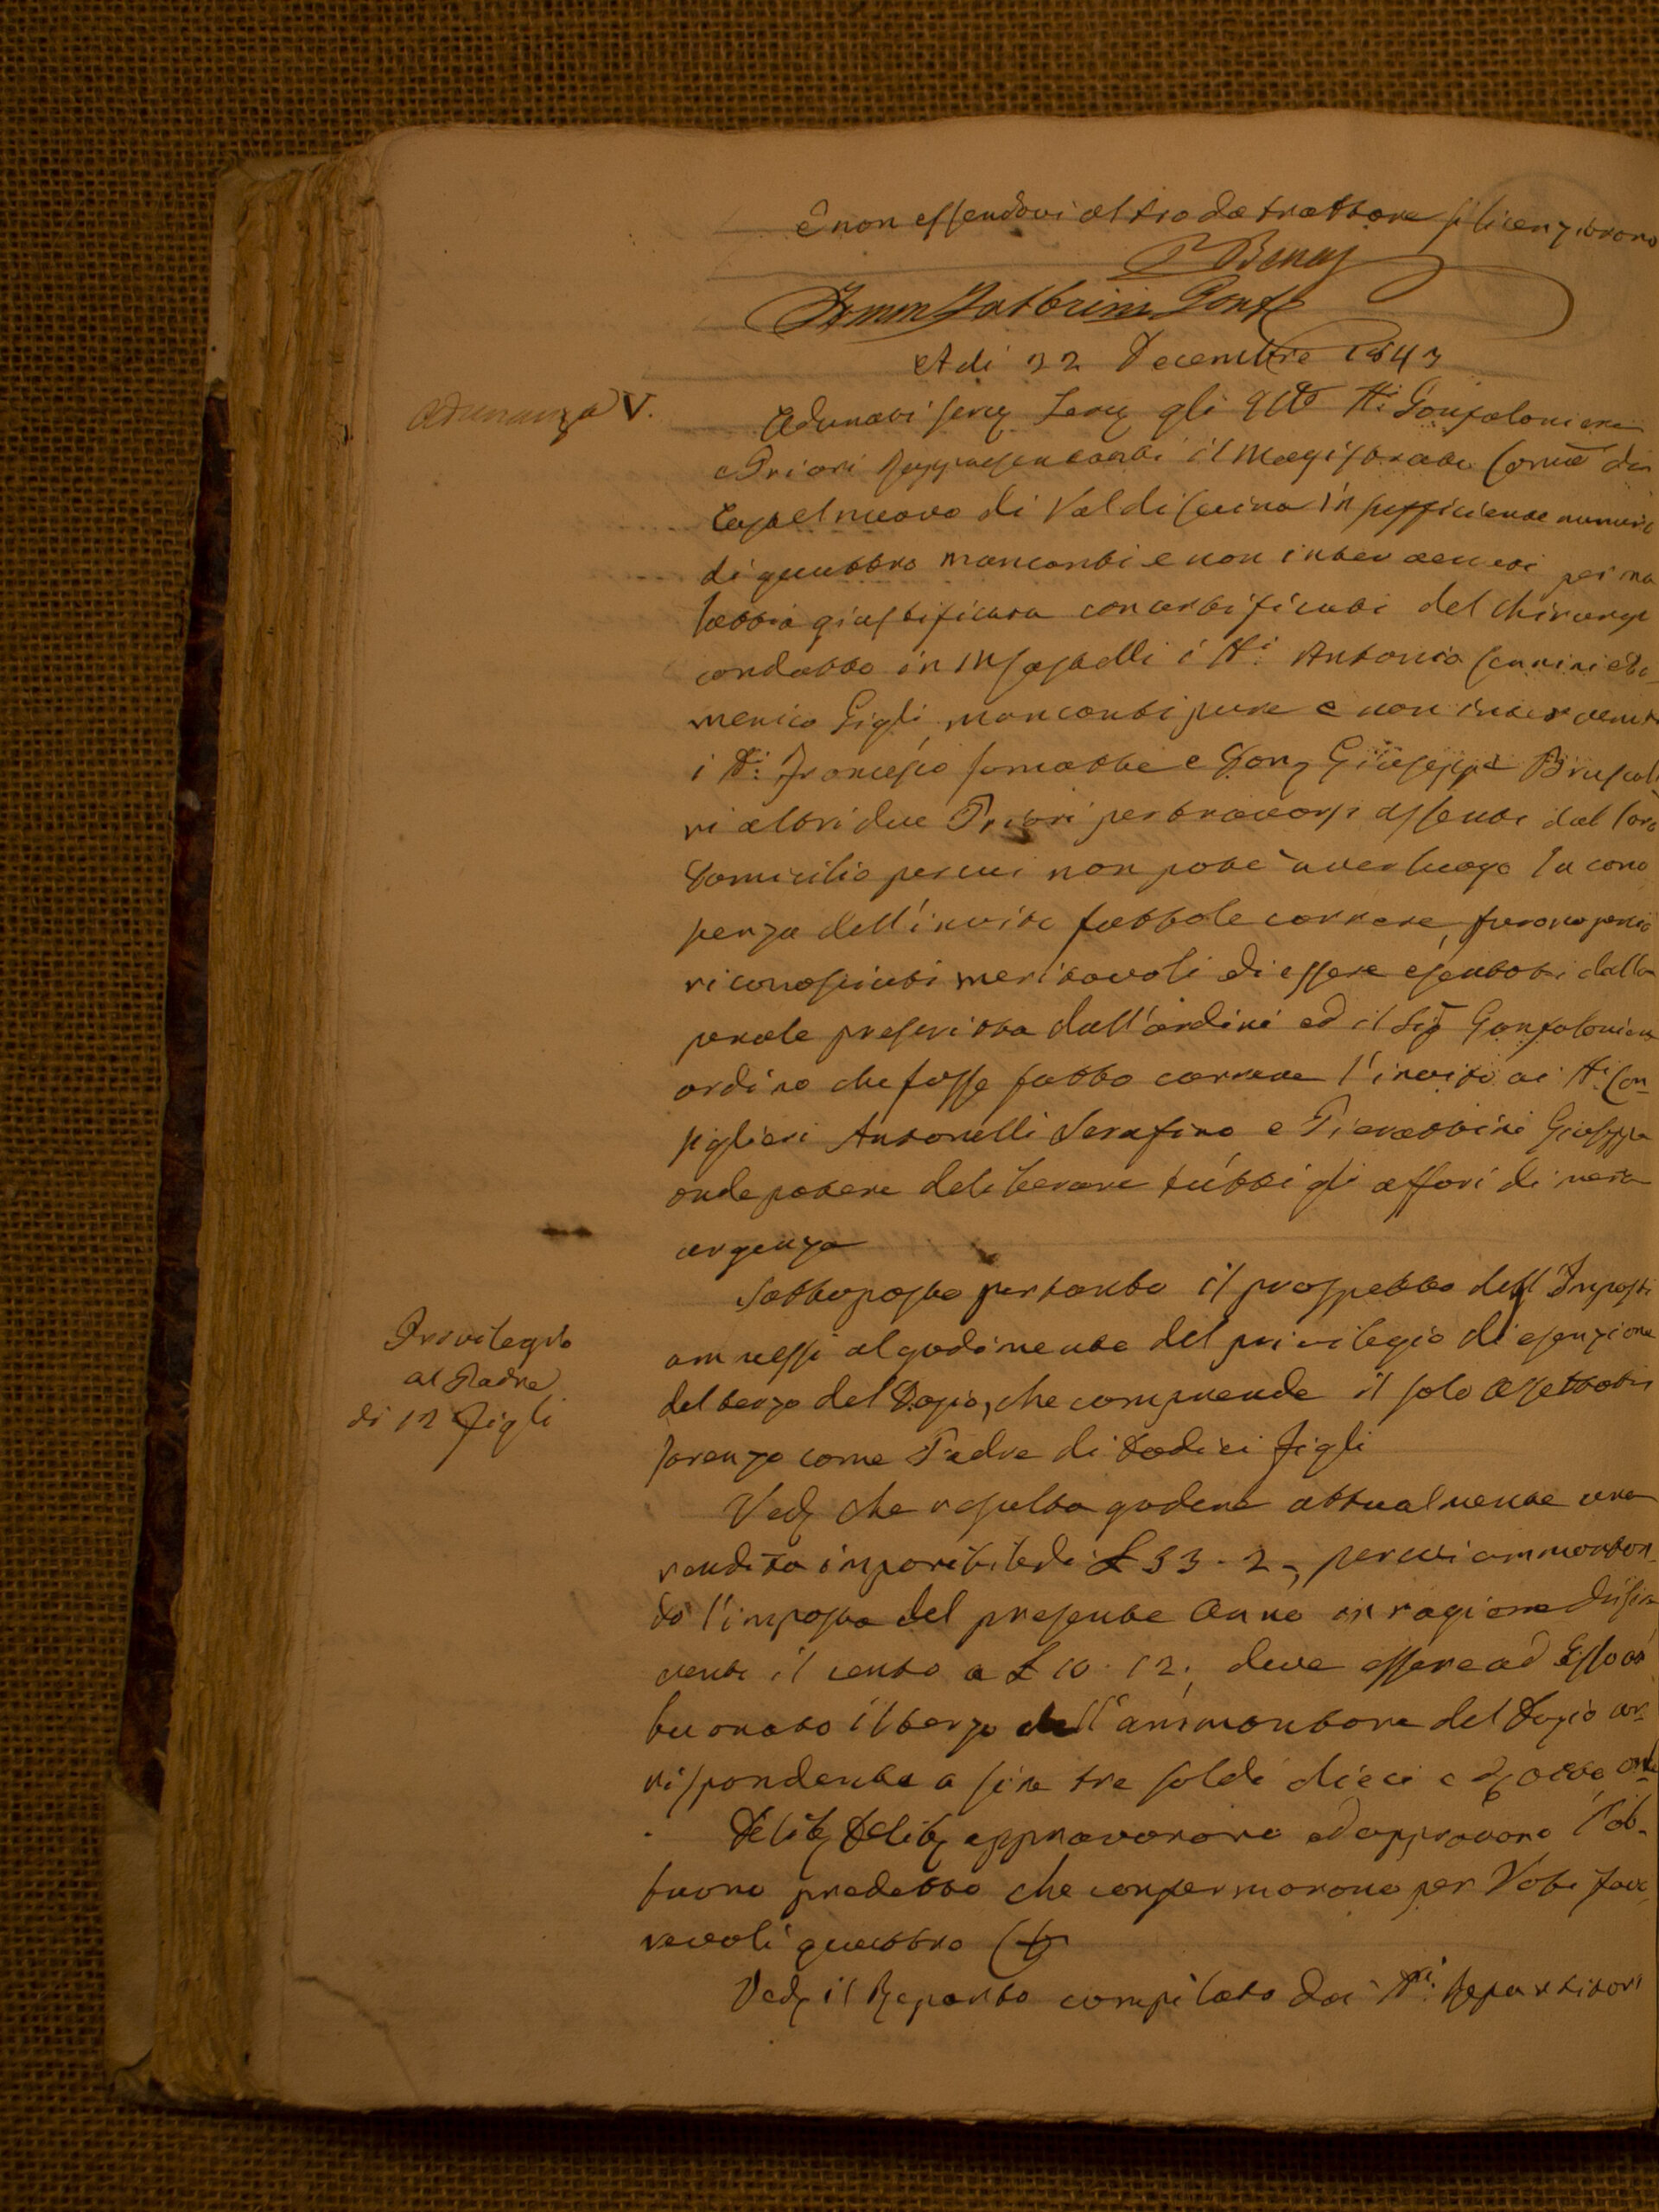 E non essendovi altro da trattare si licenziorono
T Benci
Tomm Fabbrini Gonf
A di 22 Decembre 1843
Adunanza V.
Adunati serv. serv. gli Ill. SS.i Gonfaloniere
e Priori Rappresentanti il Magistrato Com.e di
Castelnuovo di Val di Cecina in sufficiente numero
di quattro mancanti e non intervenuti per ma
lattia giustificata con certificati del Chirurgo
condotto in Infaspelli i SS.i Antonio Cennini e Do
menico Gigli, mancanti pure e non intervenuti
i SS.i Francesco Somatti e Gonf Giuseppe Bruscol
ri altri due Priori per trovarsi assenti dal loro
Domicilio per cui non potè aver luogo la cono
scenza dell'invito fattole correre, furono perciò
riconosciuti meritevoli di essere esentati dalla
penale prescritta dall'ordini ed il Sig Gonfaloniere
ordinò che fosse fatto correre l'invito ai SS.i Con-
siglieri Antonelli Serafino e Pierattini Giuseppe
onde potere deliberare tutti gli affari di vera
urgenza
Privilegio
al Padre
di 12 figli
Sottoposto pertanto il prospetto dell'Imposti
ammessi al godimento del privilegio di esenzione
del terzo del Dazio, che comprende il solo
Lorenzo come Padre di Dodici figli
Ved che resulta godere attualmente una
rendita imponibile di £ 33 - 2 -, per cui ammontan-
do l'imposta del presente Anno in ragione di lire
venti il cento a £ 10. 12. deve essere ad Esso ab
buonato il terzo dell'ammontare del Dazio cor-
rispondente a lire tre soldi dieci e otto onde
Delib Delib approvarono ed approvano l'ab-
buono predetto che confermarono per Voti favo
revoli quattro
Ved il Reparto compilato dai SS.ri Repartitori